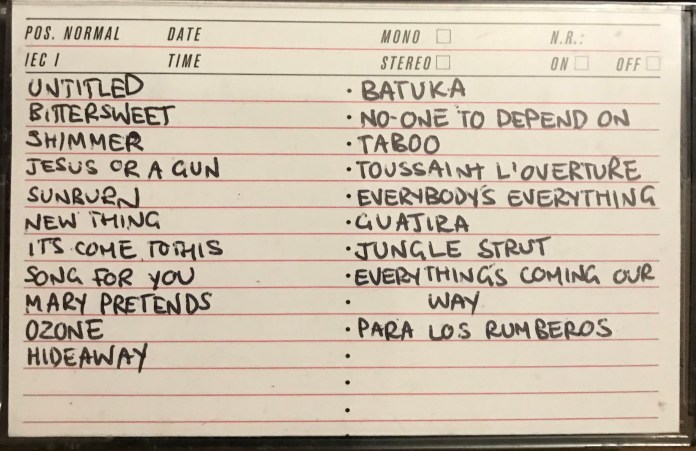 POS. NORMAL DATE MONO N.R.:
IEC I TIME STEREO ON OFF
UNTITLED
BITTERSWEET
SHIMMER
JESUS OR A GUN
SUNBURN
NEW THING
ITS COME TO THIS
SONG FOR YOU
MARY PRETENDS
OZONE
HIDEAWAY
· BATUKA
· NO-ONE TO DEPEND ON
· TABOO
· TOUSSAINT L'OVERTURE
· EVERYBODY'S EVERYTHING
· GUAJIRA
· JUNGLE STRUT
· EVERYTHING'S COMING OUR
· WAY
· PARA LOS RUMBEROS